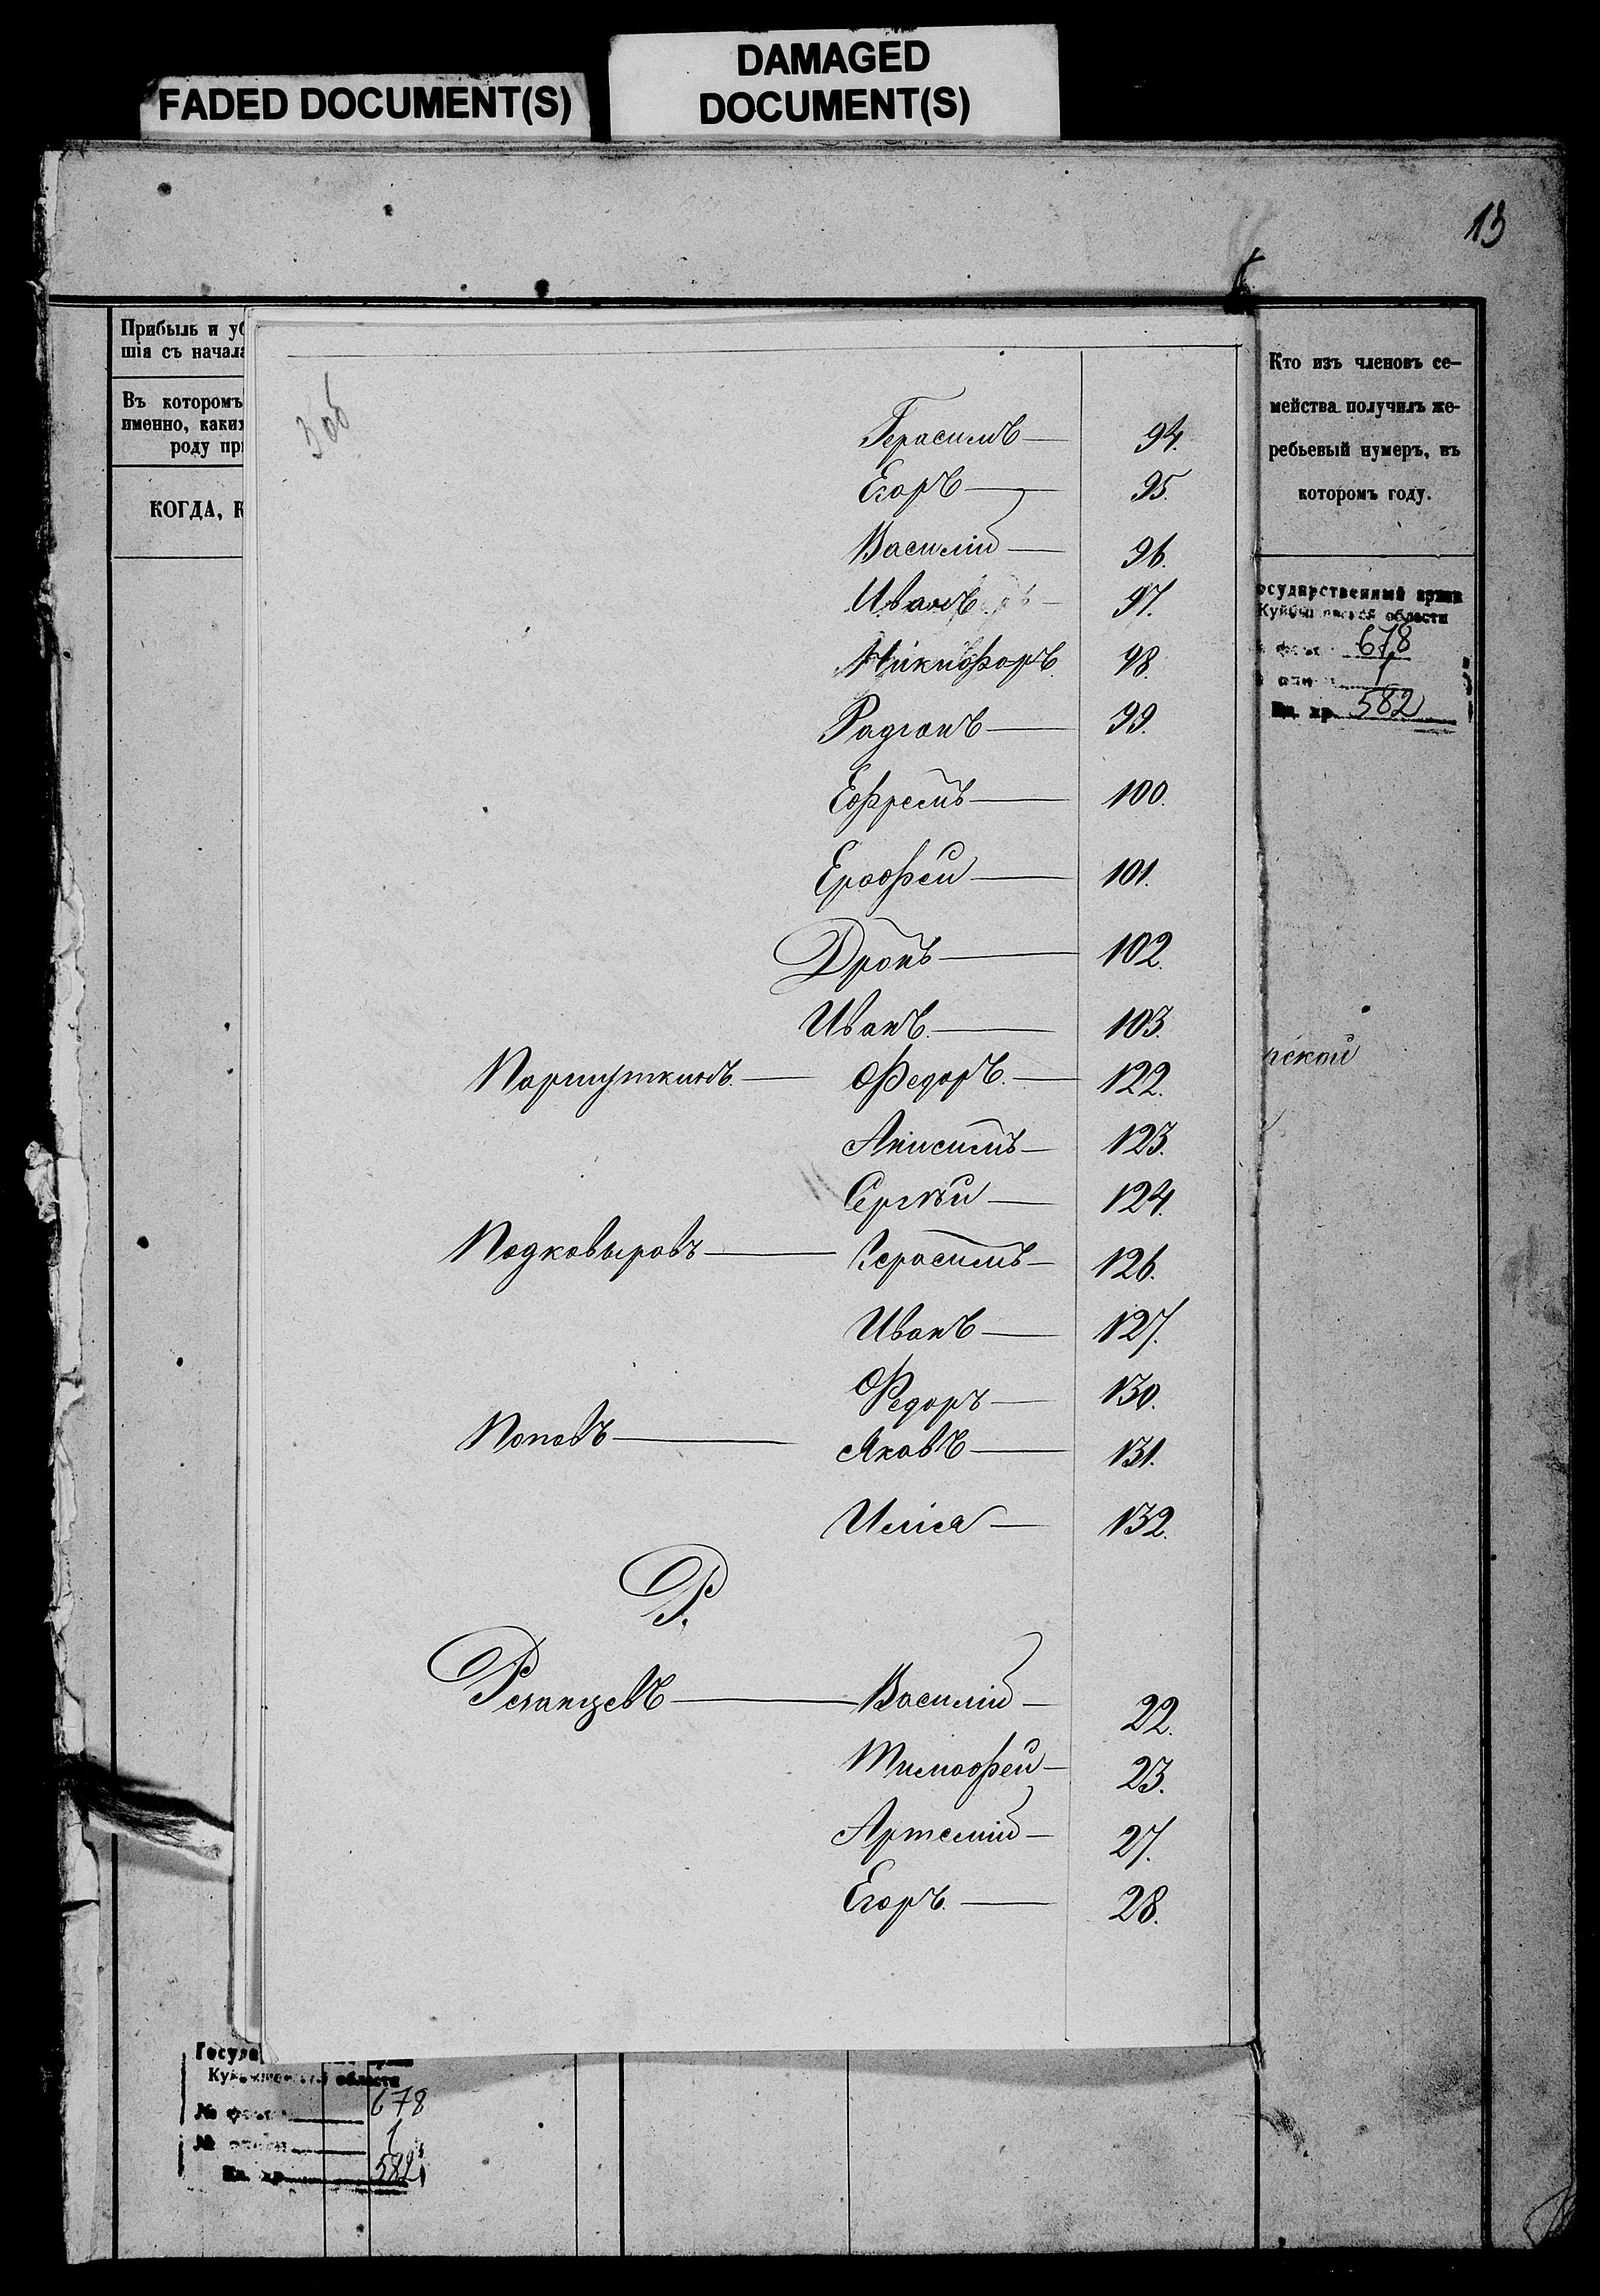 FADED DOCUMENT(S)
DAMAGED
DOCUMENT(S)
13
Прибыль и уб
шія съ начала
Въ которомъ
именно, каких
роду при
КОГДА, К
Кто изъ членовъ се-
мейства получилъ же-
ребьевый нумеръ, въ
которомъ году.
осударственный архив
Куйбышевской области
678
1
Ед. хр. 582
3 об
Герасимъ — 94.
Егоръ — 95.
Василій — 96.
Иванъ — 97.
Никифоръ 98.
Радіонъ — 99.
Ефремъ — 100.
Ерофей — 101.
Дронъ — 102.
Иванъ — 103.
рской
Паршуткинъ — Федоръ — 122.
Анисимъ — 123.
Сергѣй — 124.
Подковыровъ — Герасимъ — 126.
Иванъ — 127.
Федоръ — 130.
Поповъ — Яковъ — 131.
Илья — 132.
Р.
Рязанцевъ — Василій — 22.
Тимофей — 23.
Артемій — 27.
Егоръ — 28.
Госуда архив
Куйбышевской области
№ фонда 678
№ описи 1
Ед. хр. 582